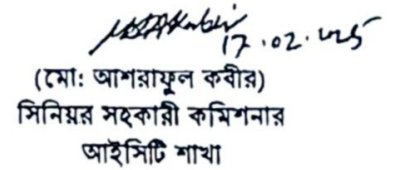 17.02.২৫
(মো: আশরাফুল কবীর)
সিনিয়র সহকারী কমিশনার
আইসিটি শাখা